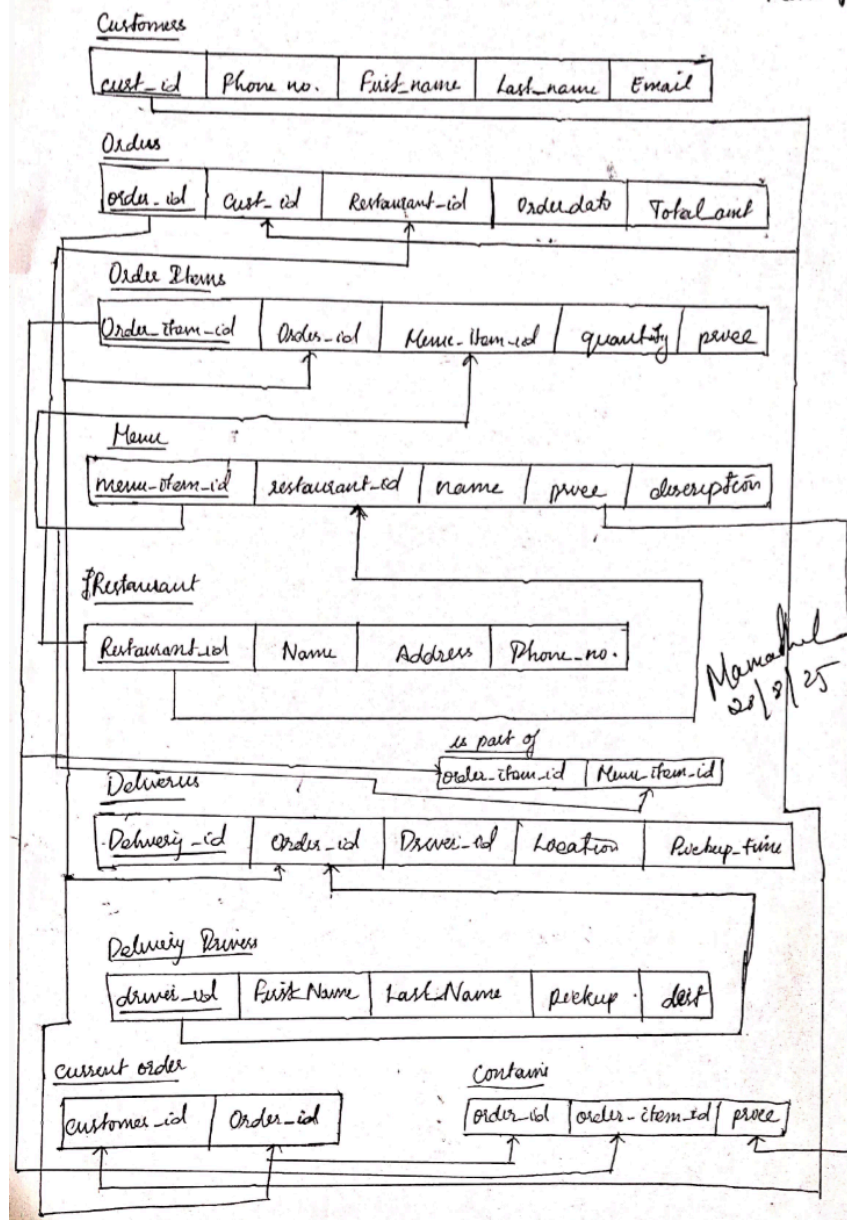 Customers
cust_id Phone no. First_name Last_name Email
Orders
order_id Cust_id Restaurant_id Order date Total_amt
Order Items
Order_item_id Order_id Menu_item_id quantity price
Menu
menu_item_id restaurant_id name price description
Restaurant
Restaurant_id Name Address Phone_no.
28/8/25
is part of
order_item_id Menu_item_id
Deliveries
Delivery_id Order_id Driver_id Location Pickup_time
Delivery Drivers
driver_id First Name Last Name pickup dest
current order
Contains
customer_id Order_id
order_id order_item_id price